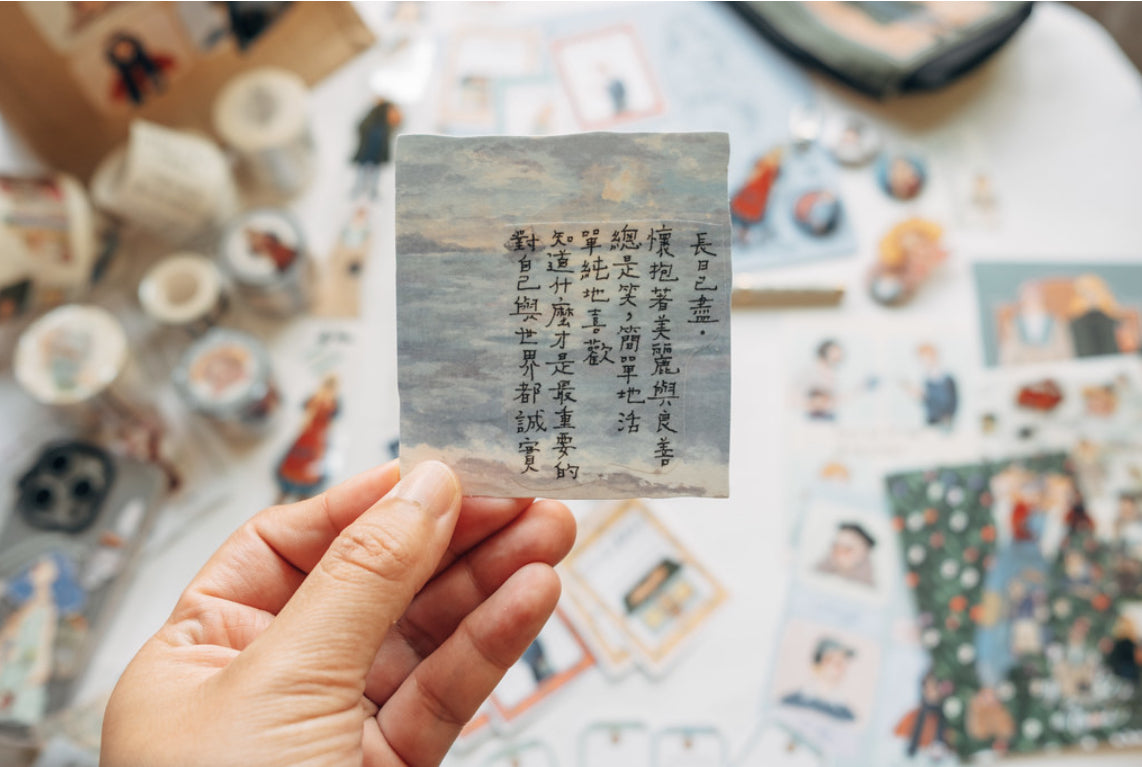 長日已盡．
懷抱著美麗與良善
總是笑，簡單地活
單純地喜歡
知道什麼才是最重要的
對自己與世界都誠實